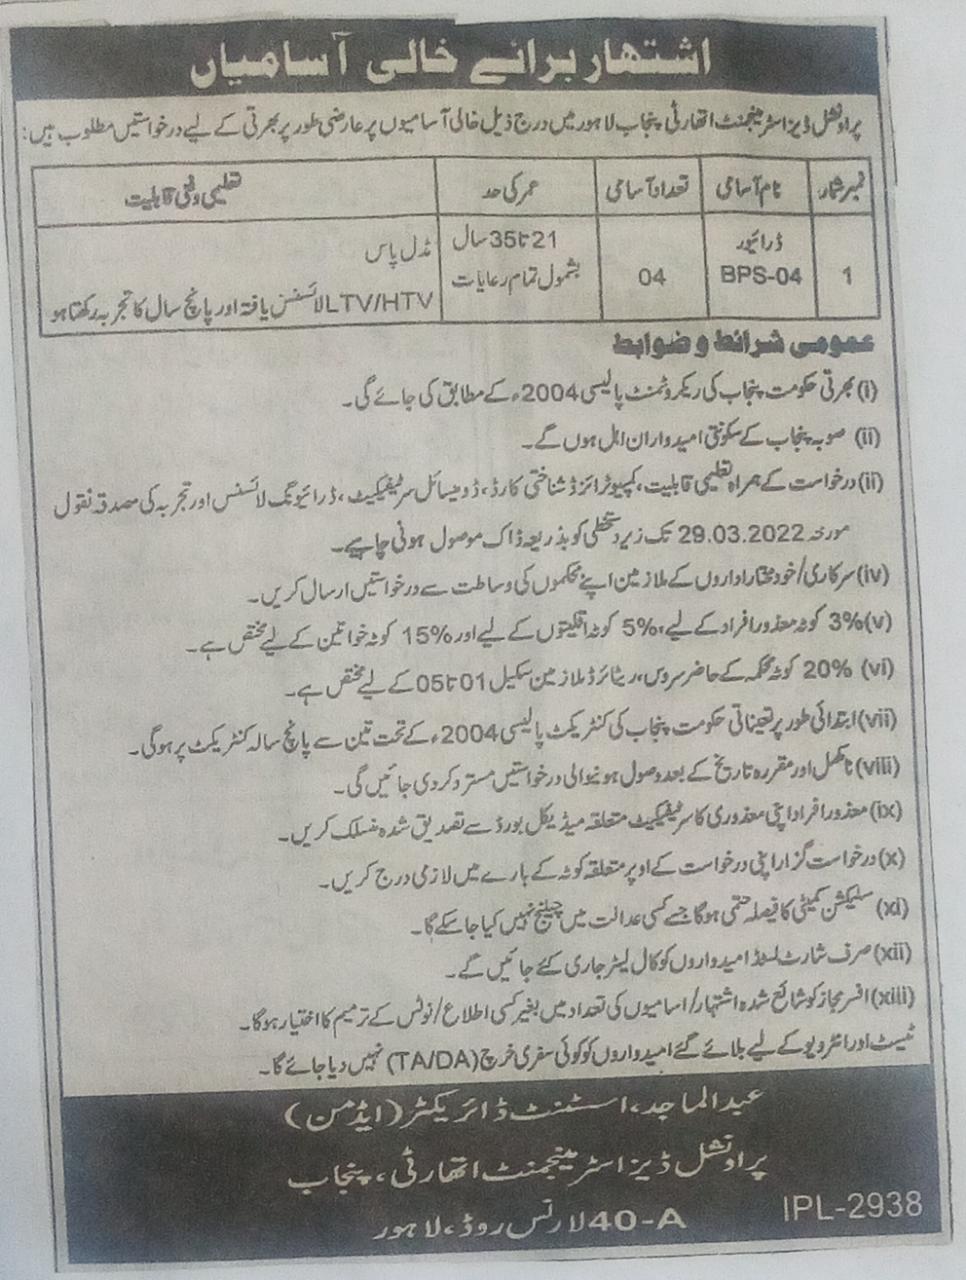 اشتہار برائے خالی آسامیاں
پراونشل ڈیزاسٹر مینجمنٹ اتھارٹی پنجاب لاہور میں درج ذیل خالی آسامیوں پر عارضی طور پر بھرتی کے لیے درخواستیں مطلوب ہیں:
نمبر شمار نام آسامی تعداد آسامی عمر کی حد تعلیمی و فنی قابلیت
1 ڈرائیور BPS-04 04 21 تا 35 سال بشمول تمام رعایات مڈل پاس
LTV/HTV لائسنس یافتہ اور پانچ سال کا تجربہ رکھتا ہو
عمومی شرائط و ضوابط
(i) بھرتی حکومت پنجاب کی ریکروٹمنٹ پالیسی 2004ء کے مطابق کی جائے گی۔
(ii) صوبہ پنجاب کے سکونتی امیدواران اہل ہوں گے۔
(ii) درخواست کے ہمراہ تعلیمی قابلیت، کمپیوٹرائزڈ شناختی کارڈ، ڈومیسائل سرٹیفکیٹ، ڈرائیونگ لائسنس اور تجربہ کی مصدقہ نقول
مورخہ 29.03.2022 تک زیر دستخطی کو بذریعہ ڈاک موصول ہونی چاہیے۔
(iv) سرکاری/خود مختار اداروں کے ملازمین اپنے محکموں کی وساطت سے درخواستیں ارسال کریں۔
(v) 3% کوٹہ معذور افراد کے لیے، 5% کوٹہ اقلیتوں کے لیے اور 15% کوٹہ خواتین کے لیے مختص ہے۔
(vi) 20% کوٹہ محکمہ کے حاضر سروس، ریٹائرڈ ملازمین سکیل 01 تا 05 کے لیے مختص ہے۔
(vii) ابتدائی طور پر تعیناتی حکومت پنجاب کی کنٹریکٹ پالیسی 2004ء کے تحت تین سے پانچ سالہ کنٹریکٹ پر ہوگی۔
(viii) نامکمل اور مقررہ تاریخ کے بعد وصول ہونیوالی درخواستیں مسترد کر دی جائیں گی۔
(ix) معذور افراد اپنی معذوری کا سرٹیفکیٹ متعلقہ میڈیکل بورڈ سے تصدیق شدہ منسلک کریں۔
(x) درخواست گزار اپنی درخواست کے اوپر متعلقہ کوٹہ کے بارے میں لازمی درج کریں۔
(xi) سلیکشن کمیٹی کا فیصلہ حتمی ہوگا جسے کسی عدالت میں چیلنج نہیں کیا جا سکے گا۔
(xii) صرف شارٹ لسٹڈ امیدواروں کو کال لیٹر جاری کئے جائیں گے۔
(xiii) افسر مجاز کو شائع شدہ اشتہار/اسامیوں کی تعداد میں بغیر کسی اطلاع/نوٹس کے ترمیم کا اختیار ہوگا۔
ٹیسٹ اور انٹرویو کے لیے بلائے گئے امیدواروں کو کوئی سفری خرچ (TA/DA) نہیں دیا جائے گا۔
عبدالماجد، اسسٹنٹ ڈائریکٹر (ایڈمن)
پراونشل ڈیزاسٹر مینجمنٹ اتھارٹی، پنجاب
40-A لارنس روڈ، لاہور
IPL-2938